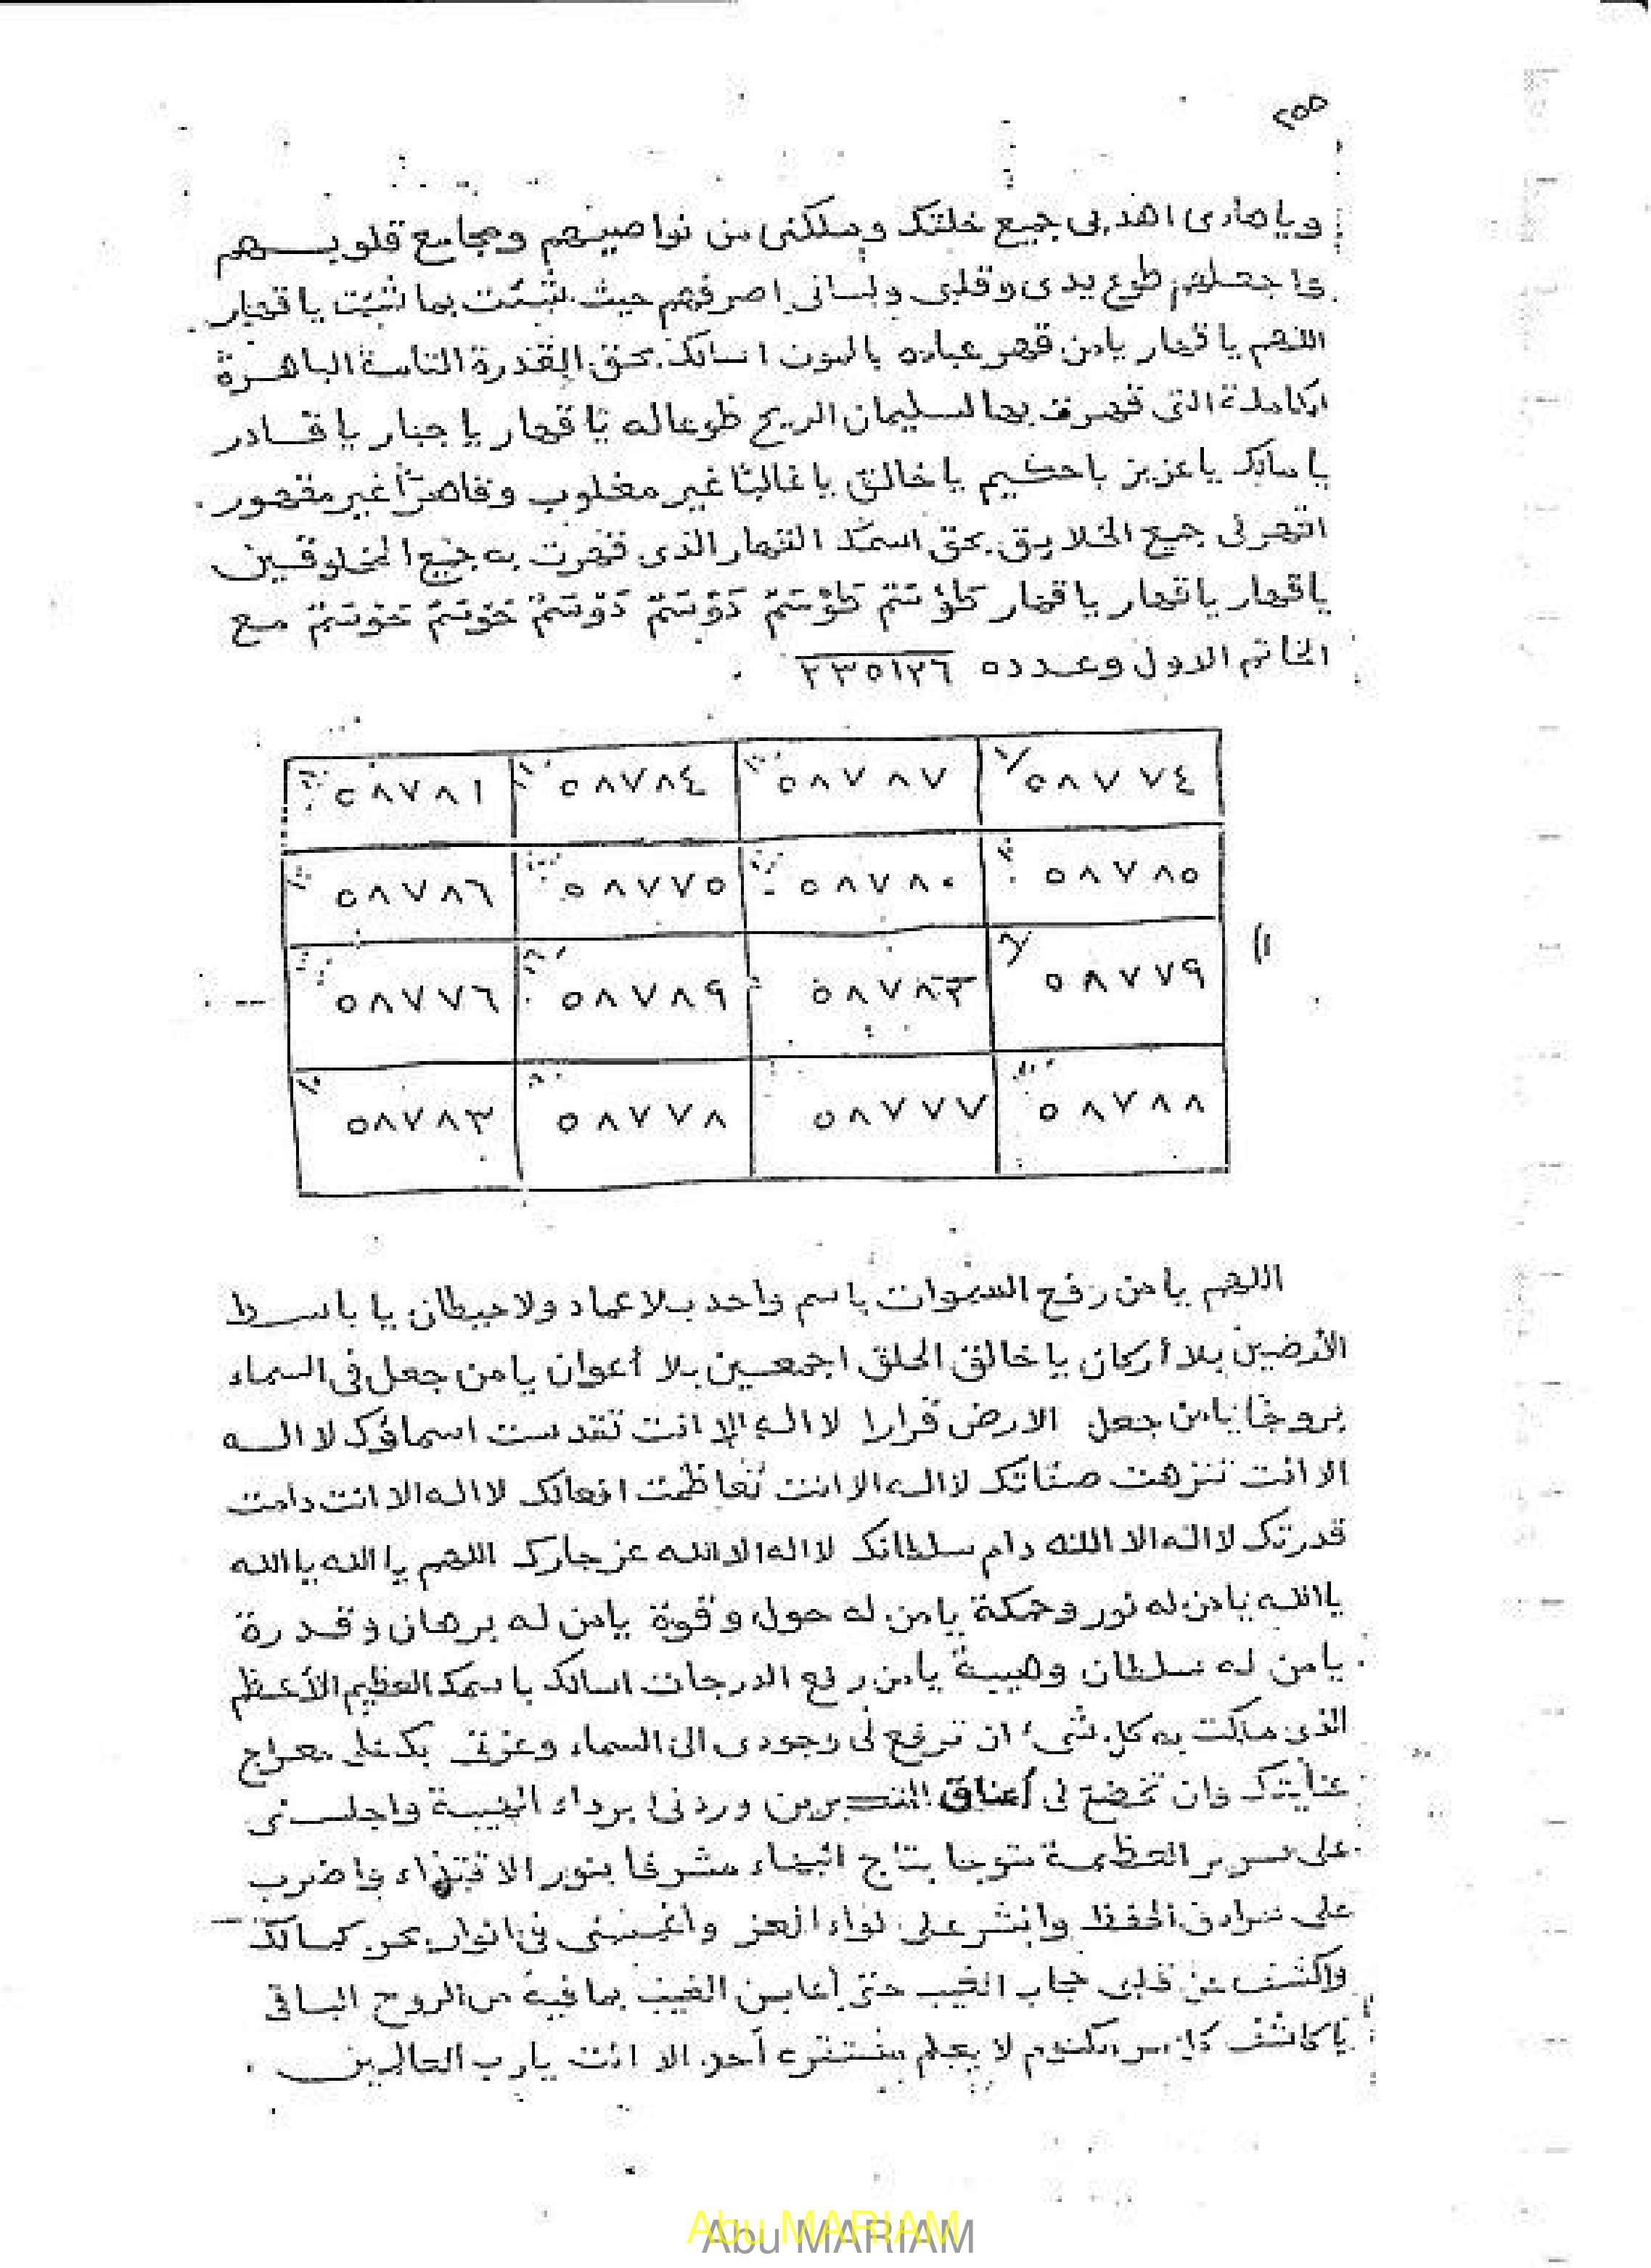 ٢٥٥
ويا هادى اهد لى جميع خلقك وملكنى من نواصيهم ومجامع قلوبهم
واجعلهم طوع يدى وقلبى ولسانى اصرفهم حيث شئت بما شئت يا قهار
اللهم يا قهار يا من قهر عباده بالموت اسالك بحق القدرة التامة الباهرة
الكاملة التى قهرت بها لسليمان الريح طوعا له يا قهار يا جبار يا قادر
يا مالك يا عزيز يا حكيم يا خالق يا غالبا غير مغلوب وقاهرا غير مقهور
اقهر لى جميع الخلايق بحق اسمك القهار الذى قهرت به جميع المخلوقين
يا قهار يا قهار يا قهار مع
الخاتم الاول وعدده ٢٣٥١٢٦
٥٨٧٧٤ ٥٨٧٨٧ ٥٨٧٨٤ ٥٨٧٨١
٥٨٧٨٥ ٥٨٧٨٠ ٥٨٧٧٥ ٥٨٧٨٦
٥٨٧٧٩ ٥٨٧٨٣ ٥٨٧٨٩ ٥٨٧٧٦
٥٨٧٨٨ ٥٨٧٧٧ ٥٨٧٧٨ ٥٨٧٨٣
اللهم يا من رفع السموات باسم واحد بلا عماد ولا حيطان يا باسط
الأرضين بلا أركان يا خالق الخلق اجمعين بلا أعوان يا من جعل فى السماء
بروجا يا من جعل الارض قرارا لا اله الا انت تقدست اسماؤك لا اله
الا انت تنزهت صفاتك لا اله الا انت تعاظمت افعالك لا اله الا انت دامت
قدرتك لا اله الا الله دام سلطانك لا اله الا الله عز جارك اللهم يا الله يا الله
يا الله يا من له نور وحكمة يا من له حول وقوة يا من له برهان وقدرة
يا من له سلطان وهيبة يا من رفع الدرجات اسالك باسمك العظيم الأعظم
الذى ملكت به كل شىء ان ترفع لى وجودى الى السماء وعزتى بك على معراج
عنايتك وان تخضع لى أعناق وردنى برداء الهيبة واجلسنى
على سرير العظمة متوجا بتاج البهاء مشرفا بنور الاقتداء واضرب
على سرادق الحفظ وانشر على لواء العز وأغمسنى فى انوار بحر كمالك
واكشف عن قلبى حجاب الغيب حتى أعاين الغيب بما فيه من الروح الباقى
يا كاشف كل سر مكتوم لا يعلم أحد الا انت يا رب العالمين
Abu MARIAM
Abu MARIAM